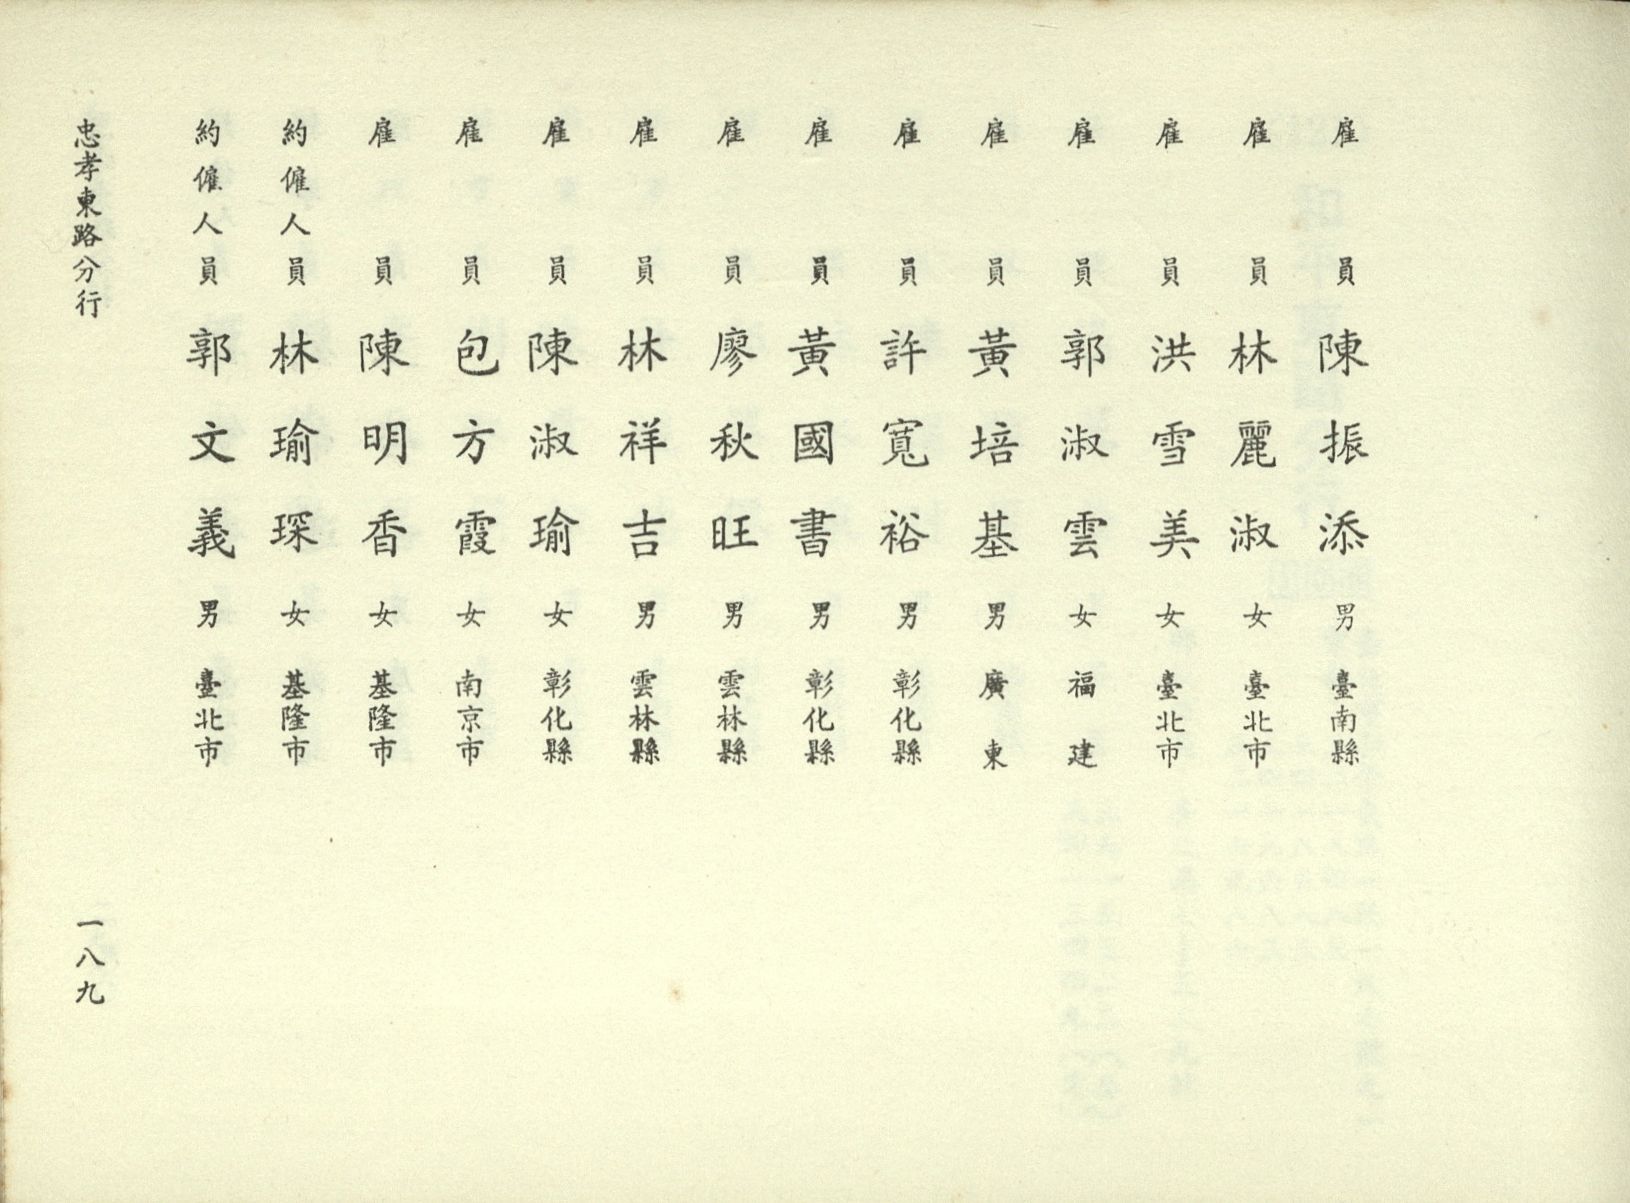 雇員 陳振添 男 臺南縣
雇員 林麗淑 女 臺北市
雇員 洪雪美 女 臺北市
雇員 郭淑雲 女 福建
雇員 黃培基 男 廣東
雇員 許寬裕 男 彰化縣
雇員 黃國書 男 彰化縣
雇員 廖秋旺 男 雲林縣
雇員 林祥吉 男 雲林縣
雇員 陳淑瑜 女 彰化縣
雇員 包方霞 女 南京市
雇員 陳明香 女 基隆市
約僱人員 林瑜琛 女 基隆市
約僱人員 郭文義 男 臺北市
忠孝東路分行
一八九